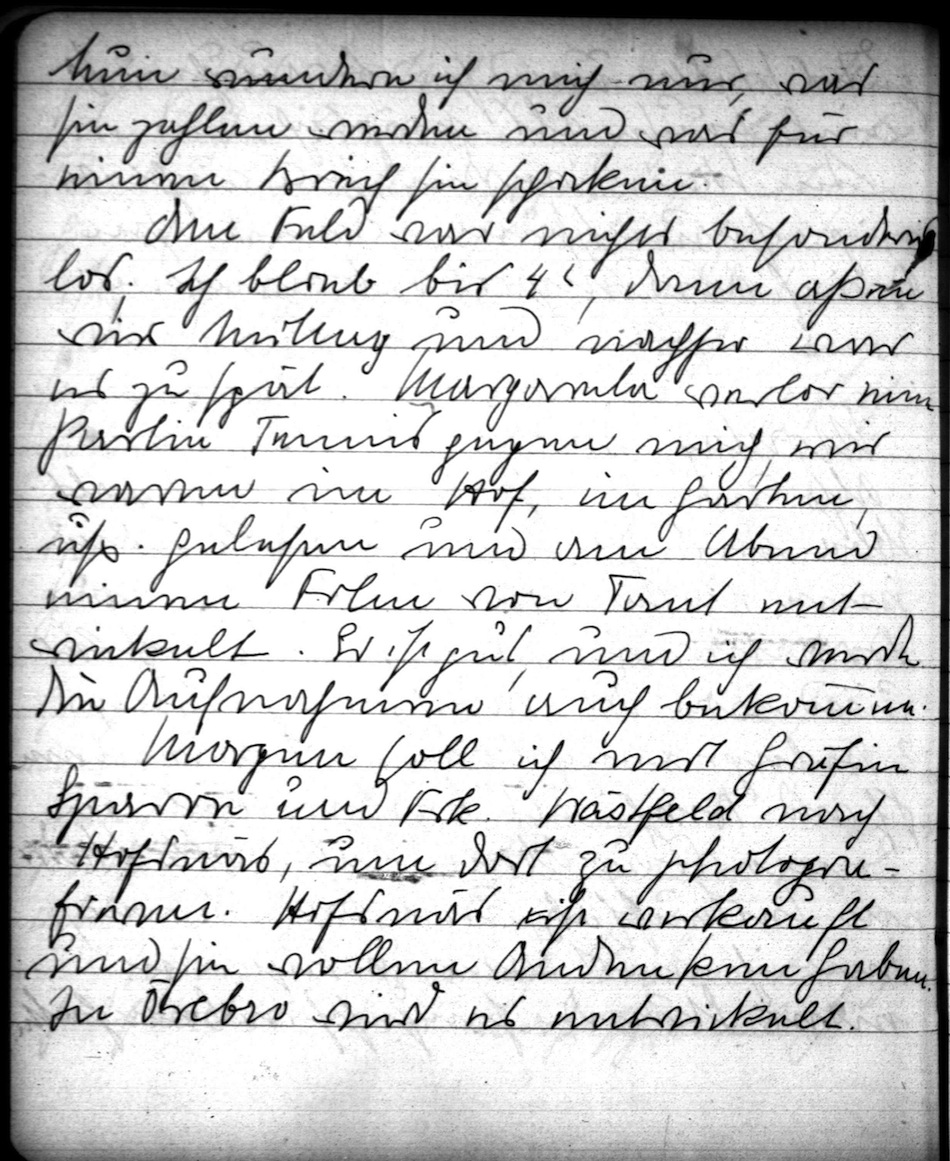 Nun wundere ich mich nur, was
sie zahlen werden und was für
einen Wisch sie schicken.
Am Feld war nichts besonderes
los. Ich blieb bis 4ʰ, dann aßen
wir Mittag und nachher war
es zu spät. Margareta verlor eine
Partie Tennis gegen mich, wir
waren im Hof, im Garten,
usw. gelesen und am Abend
einen Film von Tant ent-
wickelt. Er ist gut, und ich werde
die Aufnahmen auch bekommen.
Morgen soll ich mit Gräfin
Sparre und Frk. Westfeld nach
Hofsnäs, um dort zu photogra-
fieren. Hofsnäs ist verkauft
und sie wollen Andenken haben.
In Örebro wird es entwickelt.